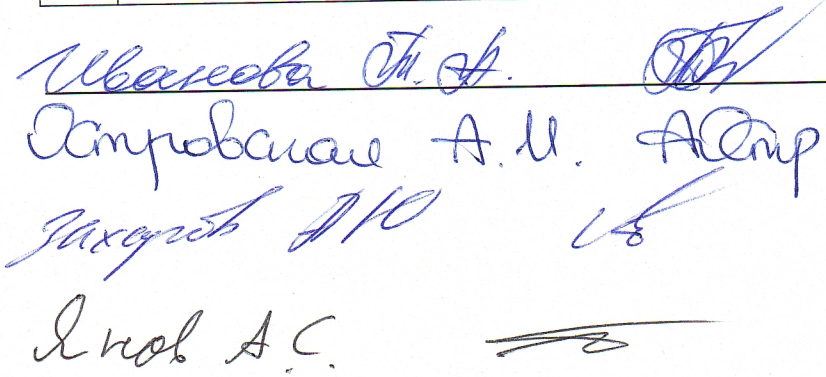 Иванова Т. А.
Островская А. И. АОстр
Захаров А Ю
Янов А. С.